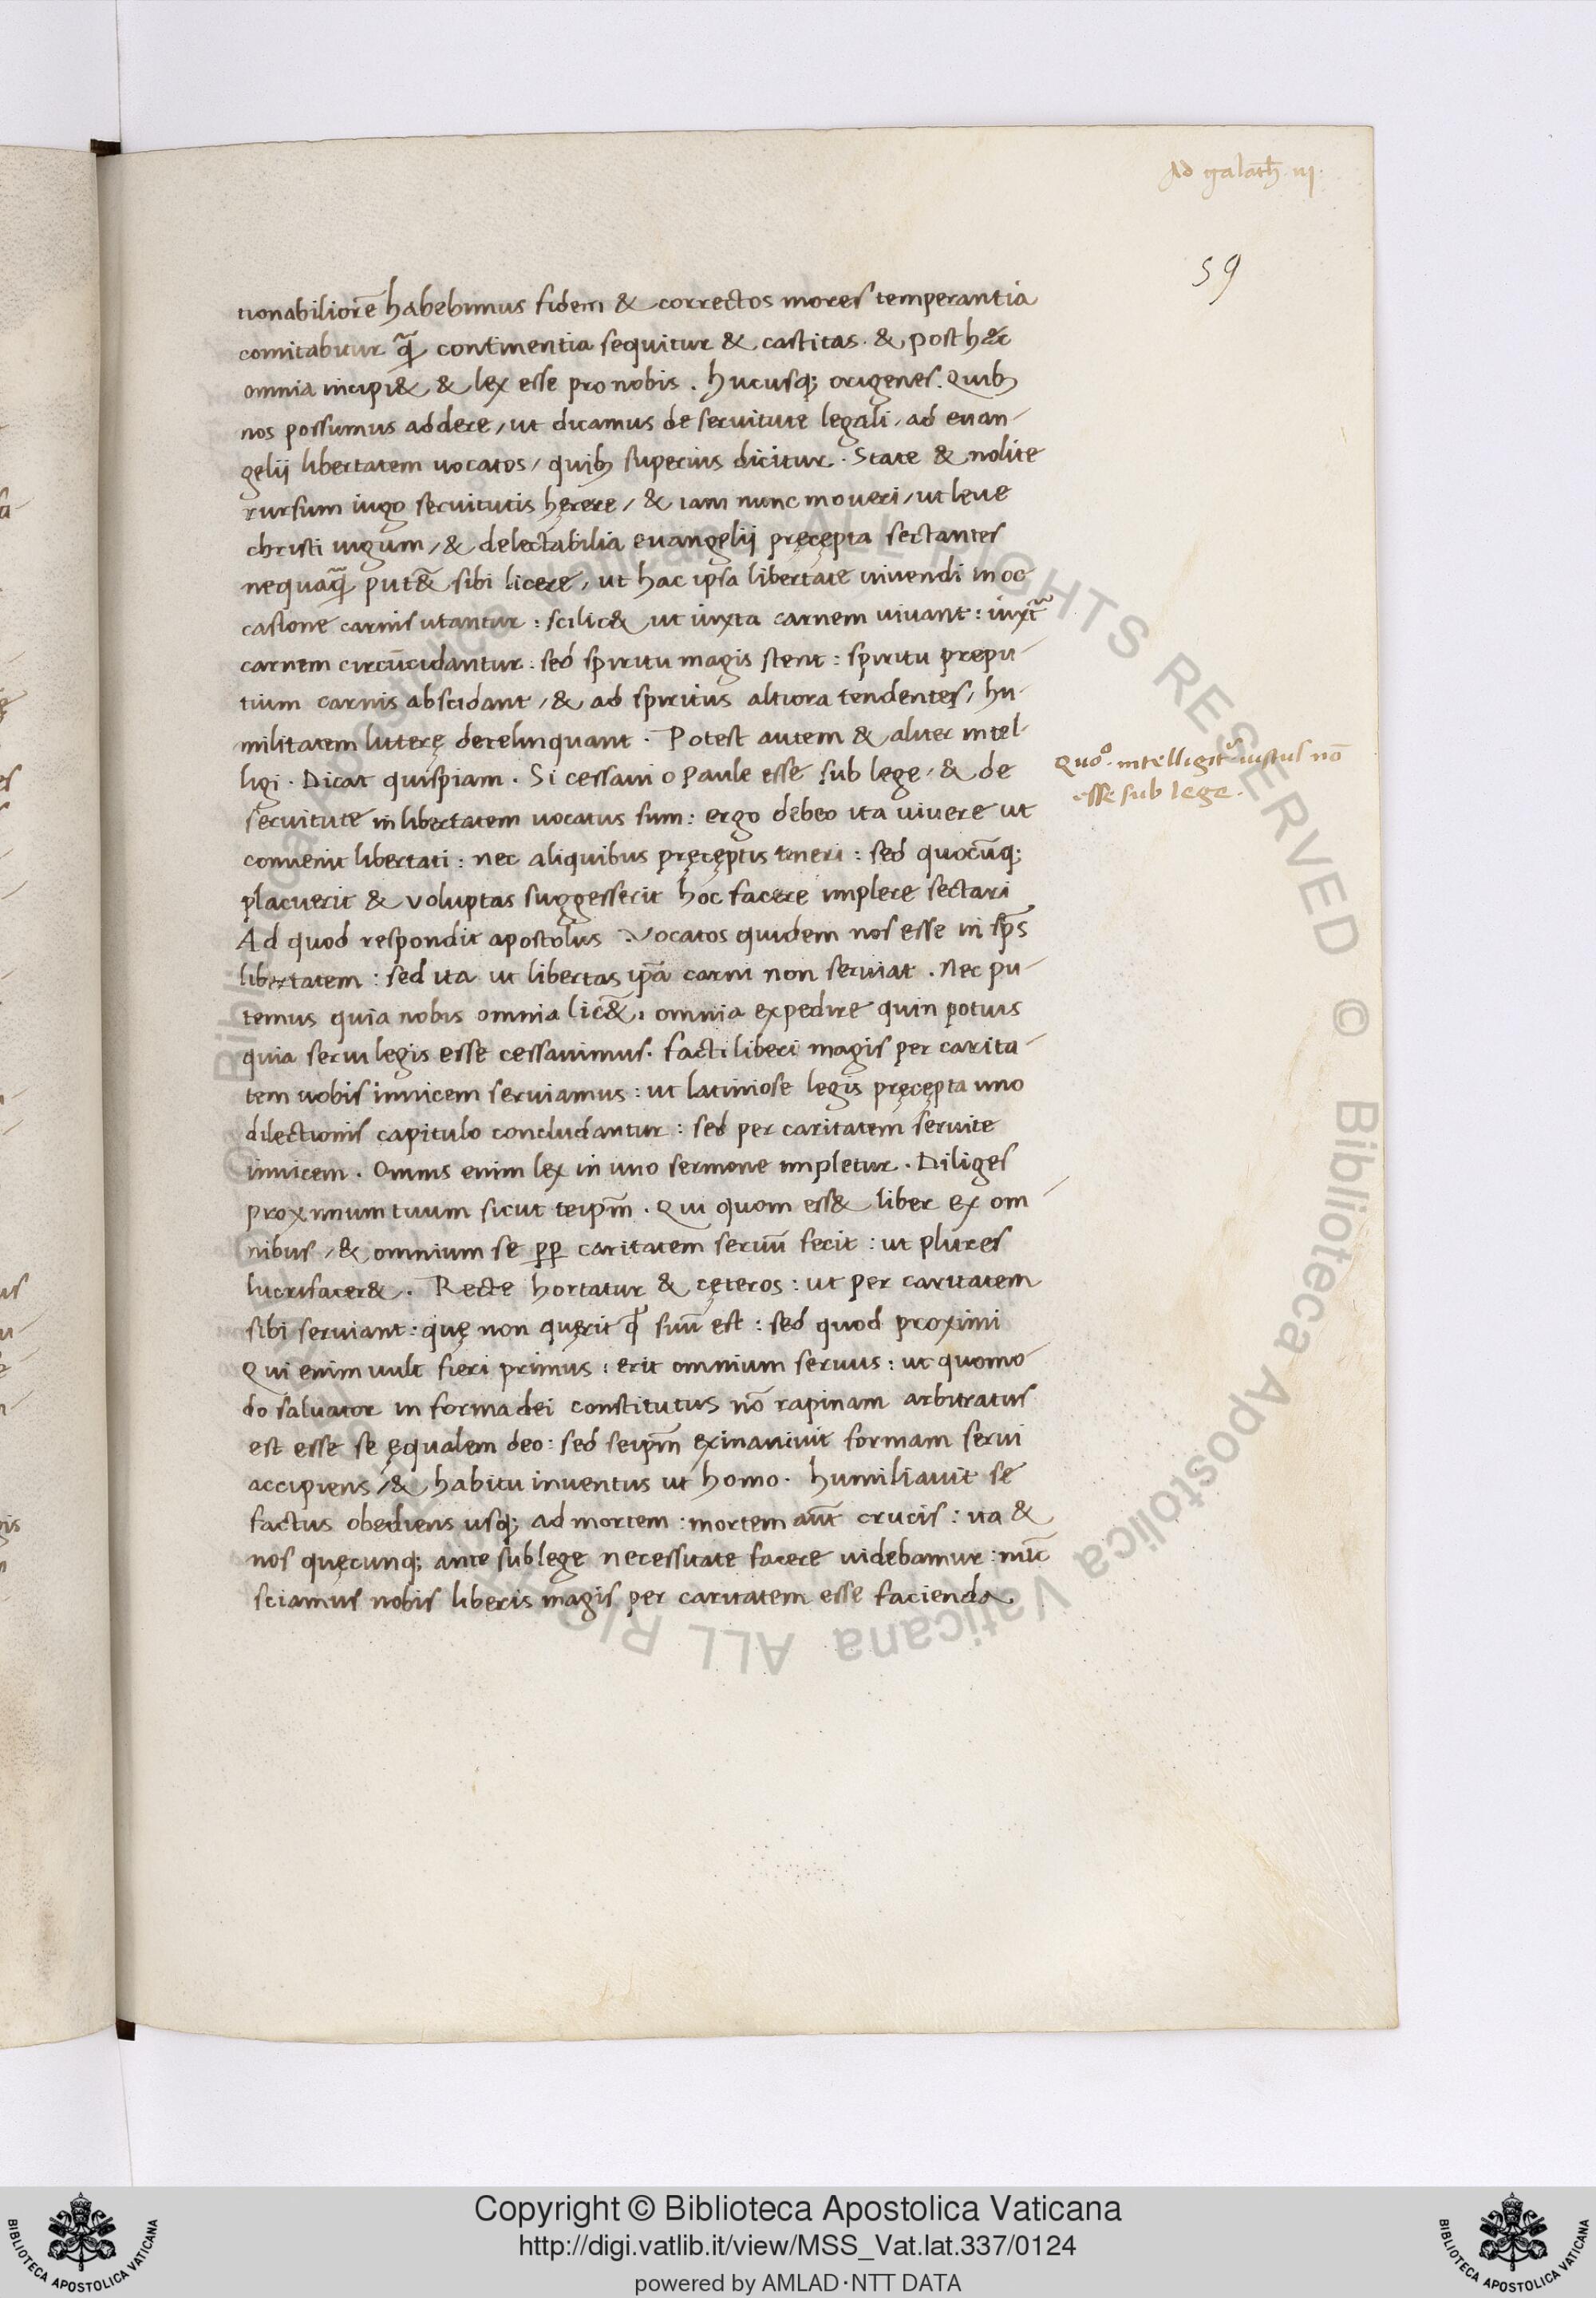 Ad galath̄ . iij .
59
tionabiliorē habebimus fidem & correctos mores temperantia
comitabitur q̃ continentia sequitur & castitas . & post hæc
omnia incipi& & lex esse pro nobis . hucusq; origenes . Quib;
nos possumus addere / ut dicamus de seruitute legali / ad euan-
gelij libertatem uocatos / quib; superius dicitur . State & nolite
rursum iugo seruitutis hęrere / & iam nunc moueri / ut leue
christi iugum / & delectabilia euangelij pręcępta sectantes
nequaq̃ put&̃ sibi licere / ut hac ipsa libertate uiuendi in oc
casione carnis utantur : scilic& ut iuxta carnem uiuant : iuxt̃
carnem circūcidantur : sed spiritu magis stent : spiritu prepu-
tium carnis abscidant / & ad spiritus altiora tendentes / hu-
militatem litterę derelinquant . Potest autem & aliter intel-
ligi . Dicat quispiam . Si cessaui o Paule esse sub lege / & de
seruitute in libertatem uocatus sum : ergo debeo ita uiuere ut
conuenit libertati : nec aliquibus pręcęptis teneri : sed quocūq;
placuerit & voluptas suggesserit hoc facere implere sectari
Ad quod respondit apostolus . Vocatos quidem nos esse in sp̄s
libertatem : sed ita ut libertas ip̄a carni non seruiat . Nec pu-
temus quia nobis omnia lic&̃ , omnia expedire quin potius
quia serui legis esse cessauimus . facti liberi magis per carita-
tem uobis inuicem seruiamus : ut latiniose legis pręcępta uno
dilectionis capitulo concludantur : sed per caritatem seruite
inuicem . Omnis enim lex in uno sermone impletur . Diliges
proximum tuum sicut teip̄m . Qui quom ess& liber ex om-
nibus / & omnium se ꝑp caritatem seruū fecit : ut plures
lucrifacer& . Recte hortatur & cęteros : ut per caritatem
sibi seruiant : quę non quęrit qđ suū est : sed quod proximi
Qui enim uult fieri primus : erit omnium seruus : ut quomo-
do saluator in forma dei constitutus nō rapinam arbitratus
est esse se ęqualem deo : sed seip̄m exinaniuit formam serui
accipiens / & habitu inuentus ut homo . humiliauit se
factus obediens usq; ad mortem : mortem aūt crucis : ita &
nos quęcunq; ante sub lege necessitate facere uidebamur : nūc
sciamus nobis liberis magis per caritatem esse facienda
Quo° intelligit᷑ iustus nō
esse sub lege .
© Biblioteca Apostolica Vaticana ALL RIGHTS RESERVED © Biblioteca Apostolica Vaticana ALL RIG
Copyright © Biblioteca Apostolica Vaticana
http://digi.vatlib.it/view/MSS_Vat.lat.337/0124
powered by AMLAD·NTT DATA
BIBLIOTECA APOSTOLICA VATICANA
BIBLIOTECA APOSTOLICA VATICANA